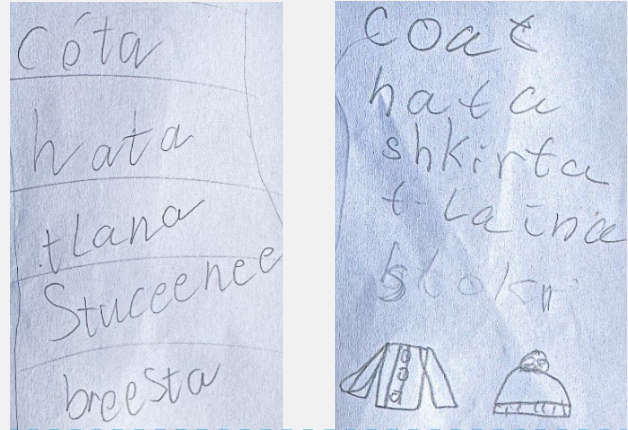 Cóta
hata
tlana
Stuceenee
breesta
coat
hata
shkirta
t-laina